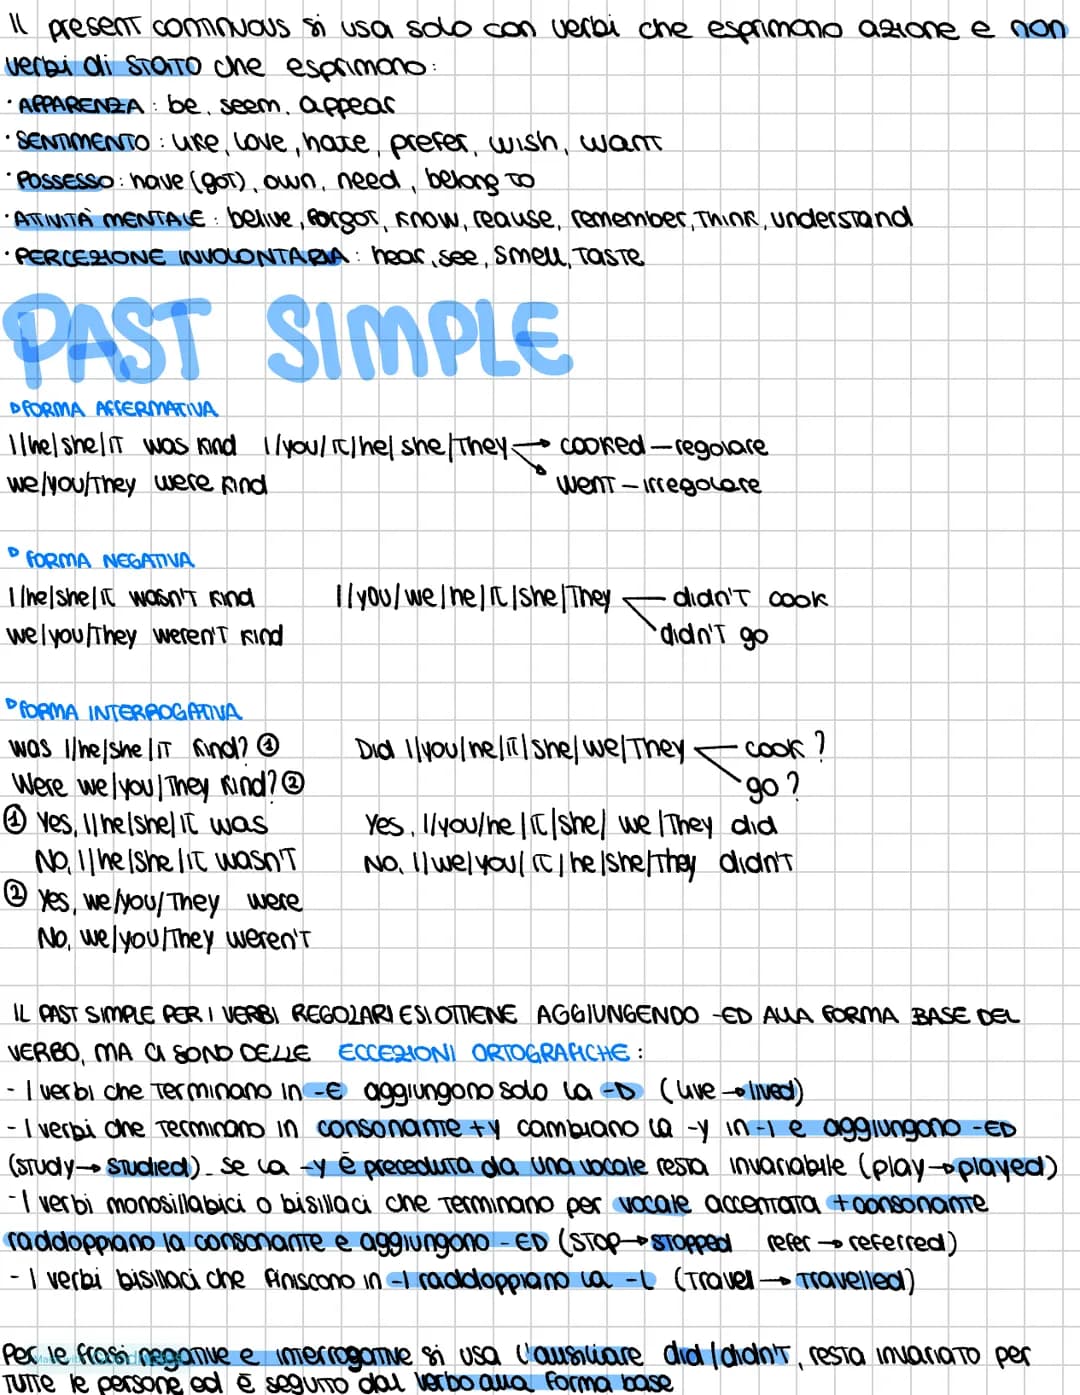 Il present continuous si usa solo con verbi che esprimono azione e non
verbi di STATO che esprimono:
· APPARENZA : be, seem, appear
· SENTIMENTO : like, love, hate, prefer, wish, want
· POSSESSO : have (got), own, need, belong to
· ATIVITÀ MENTALE : belive, forgot, know, reause, remember, think, understand
· PERCEZIONE INVOLONTARIA : hear, see, smell, taste
PAST SIMPLE
FORMA AFFERMATIVA
I/he/she/it was kind I/you/it/he/she/they → cooked – regolare
we/you/they were kind went – irregolare
FORMA NEGATIVA
I/he/she/it wasn't kind I/you/we/he/it/she/they didn't cook
we/you/they weren't kind didn't go
FORMA INTERROGATIVA
was I/he/she/it kind? ① Did I/you/he/it/she/we/they cook?
Were we/you/they kind? ② go?
① Yes, I/he/she/it was Yes, I/you/he/it/she/we/they did
No, I/he/she/it wasn't No, I/we/you/it/he/she/they didn't
② Yes, we/you/they were
No, we/you/they weren't
IL PAST SIMPLE PER I VERBI REGOLARI ESI OTTIENE AGGIUNGENDO -ED ALLA FORMA BASE DEL
VERBO, MA CI SONO DELLE ECCEZIONI ORTOGRAFICHE :
- I verbi che terminano in -E aggiungono solo la -D (live → lived)
- I verbi che terminano in consonante +y cambiano la -y in -i e aggiungono -ED
(study → studied). Se la -y è preceduta da una vocale resta invariabile (play → played)
- I verbi monosillabici o bisillaci che terminano per vocale accentata + consonante
raddoppiano la consonante e aggiungono -ED (stop → stopped refer → referred)
- I verbi bisillaci che finiscono in -l raddoppiano la -L (travel → travelled)
Per le frasi negative e interrogative si usa l'ausiliare did/didn't, resta invariato per
tutte le persone ed è seguito dal verbo alla forma base